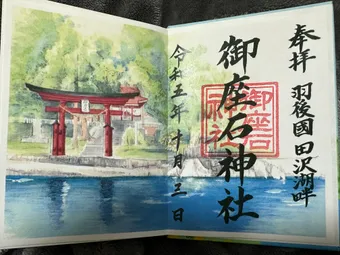 奉拝
羽後國田沢湖畔
御座石神社
御座石神社
令和五年十月三日